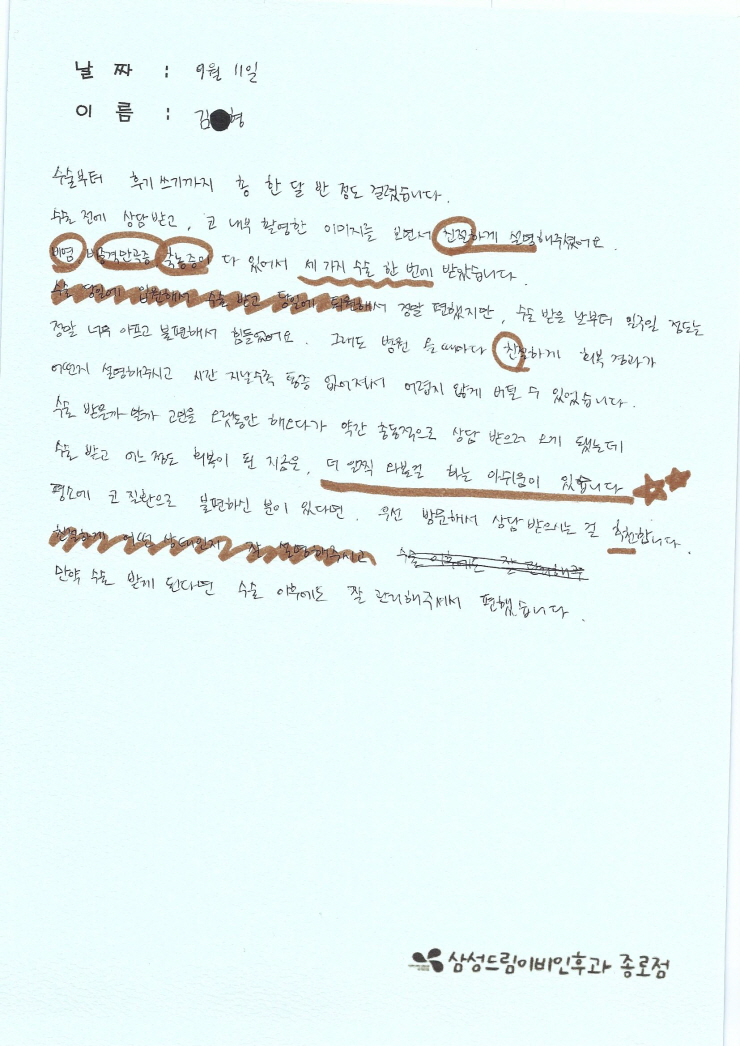 날 짜 : 9월 11일
이 름 : 김 형
수술부터 후기 쓰기까지 총 한 달 반 정도 걸렸습니다.
수술 전에 상담 받고, 코 내부 촬영한 이미지를 보면서 친절하게 설명해주셨어요.
비염 비중격만곡증 축농증이 다 있어서 세 가지 수술 한 번에 받았습니다.
수술 당일에 입원해서 수술 받고 당일에 퇴원해서 정말 편했지만, 수술 받은 날부터 일주일 정도는
정말 너무 아프고 불편해서 힘들었어요. 그래도 병원 올 때마다 친절하게 회복 경과가
어떤지 설명해주시고 시간 지날수록 통증 없어져서 어렵지 않게 버틸 수 있었습니다.
수술 받을까 말까 고민을 오랫동안 해오다가 약간 충동적으로 상담 받으러 오게 됐는데
수술 받고 어느 정도 회복이 된 지금은, 더 일찍 와볼걸 하는 아쉬움이 있습니다
평소에 코 질환으로 불편하신 분이 있다면, 우선 방문해서 상담 받으시는 걸 추천합니다.
친절하게 어떤 상태인지 잘 설명해주시고 수술 이후에는 잘 관리해주
만약 수술 받게 된다면 수술 이후에도 잘 관리해주셔서 편했습니다.
삼성드림이비인후과 종로점